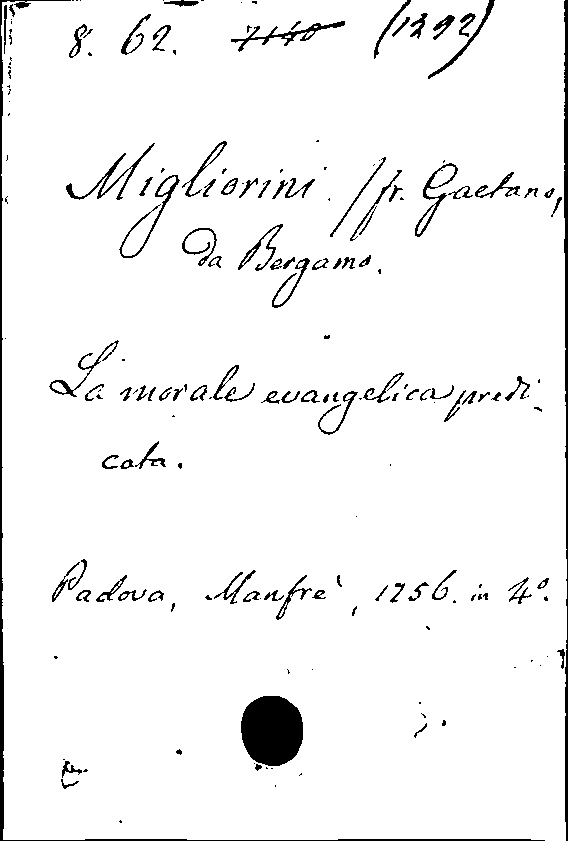 8. 62. 7140 (1292)
Migliorini /fr. Gaetano,
da Bergamo.
La morale evangelica predi-
cata.
Padova, Manfrè, 1756. in 4º.